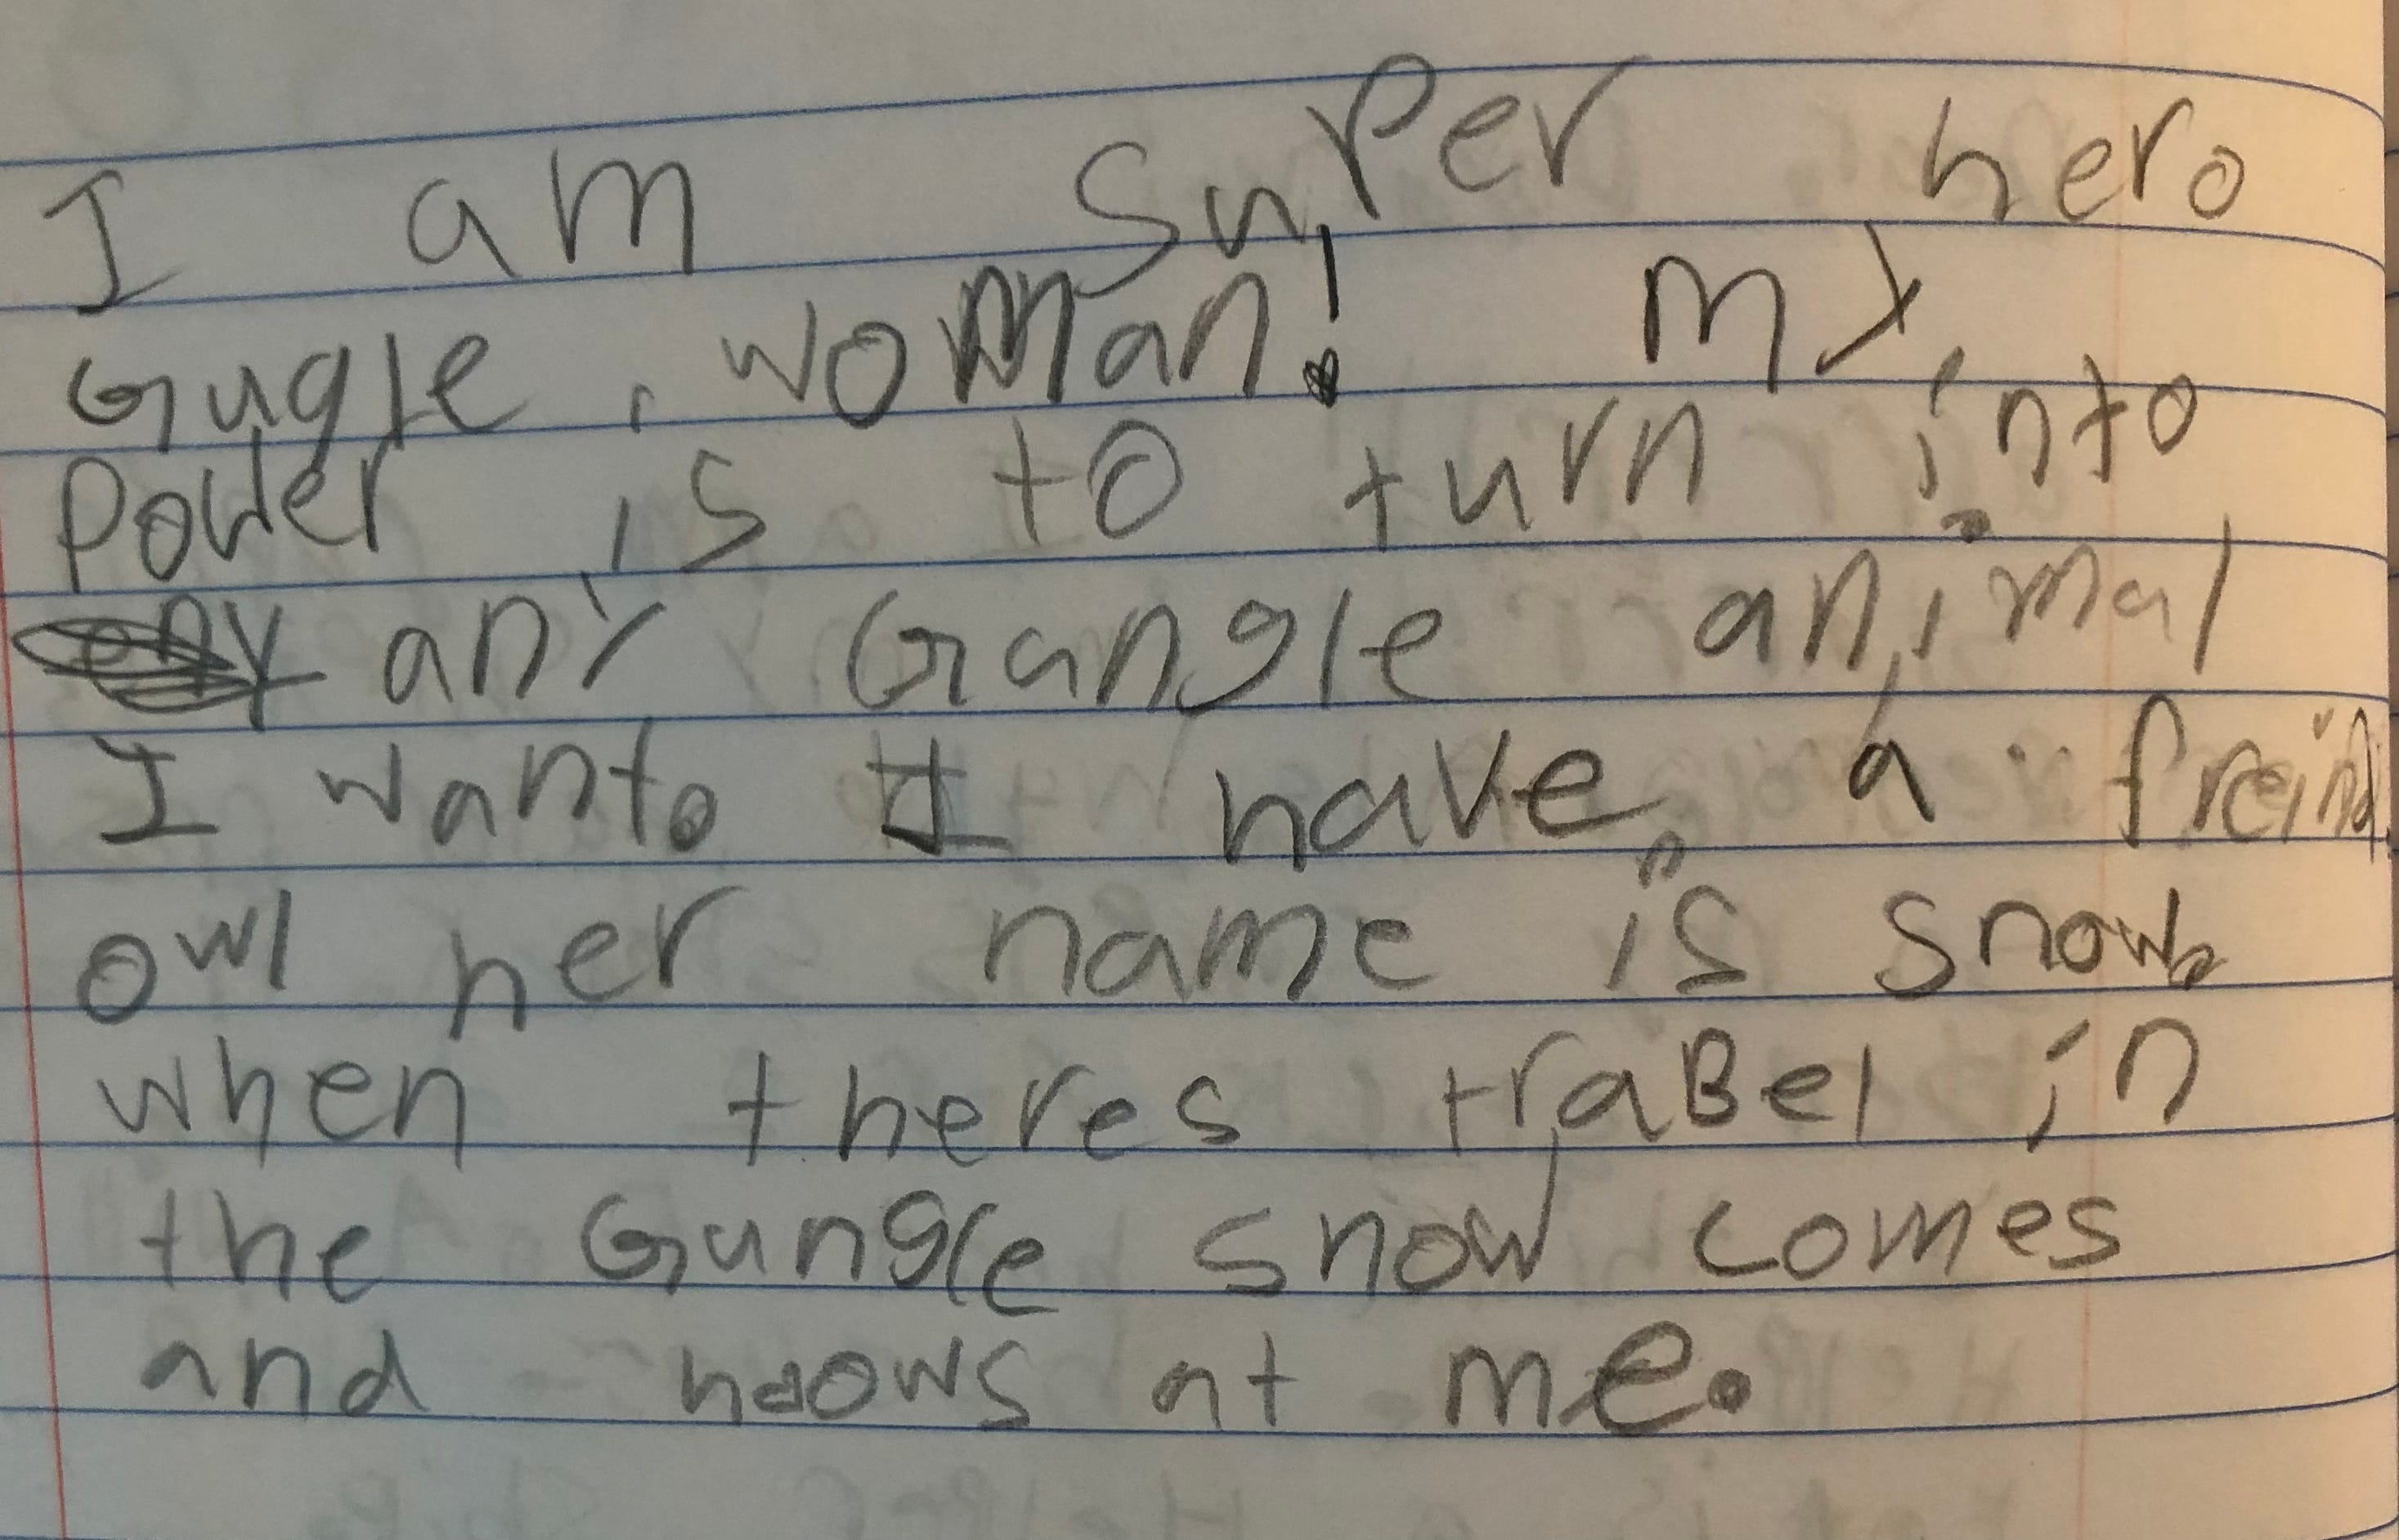 I am super hero
Gugle woman! my
Power is to turn into
any Gungle animal
I want. I have a freind
owl her name is snow.
when theres traBel in
the Gungle snow comes
and haows at me.